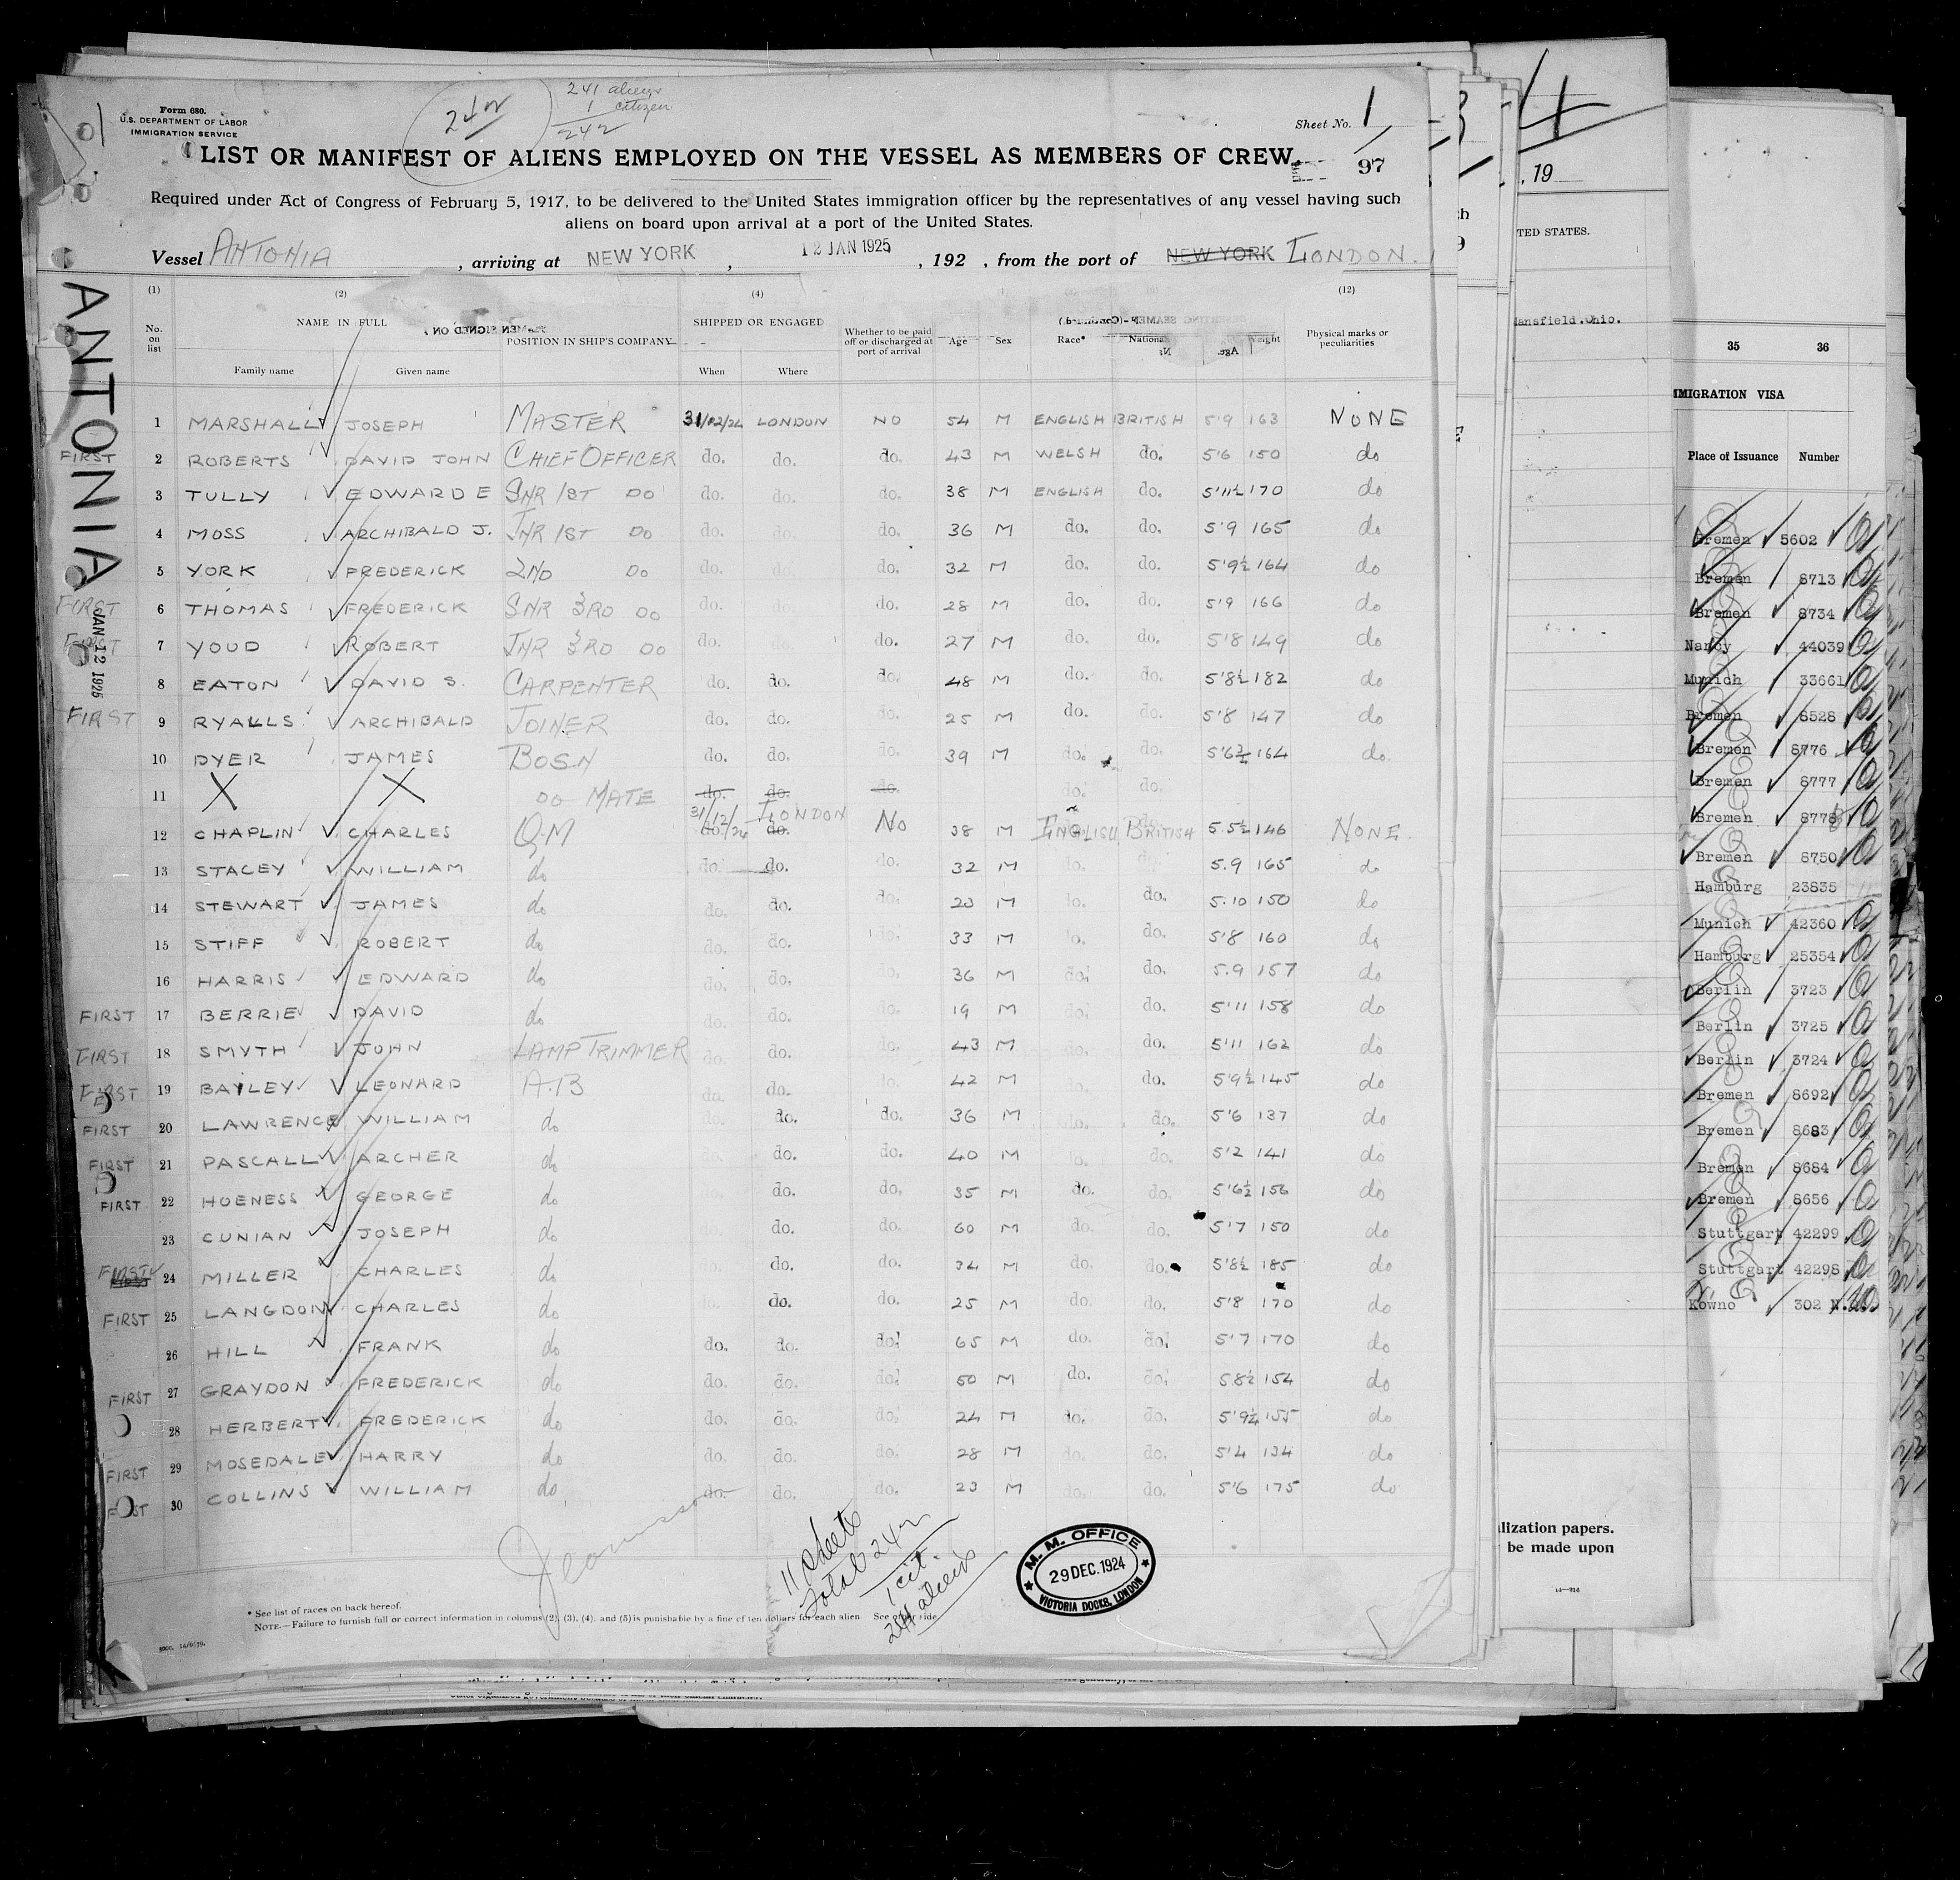 Form 680.
U.S. DEPARTMENT OF LABOR
IMMIGRATION SERVICE
242
241 aliens
1 citizen
242
Sheet No. 1
97
LIST OR MANIFEST OF ALIENS EMPLOYED ON THE VESSEL AS MEMBERS OF CREW.
Required under Act of Congress of February 5, 1917, to be delivered to the United States immigration officer by the representatives of any vessel having such
aliens on board upon arrival at a port of the United States.
Vessel ANTONIA, arriving at NEW YORK, 12 JAN 1925, 192 , from the port of NEW YORK LONDON.
ANTONIA
JAN 12 1925
(1) (2) (4) (12)
No. on list
NAME IN FULL
Family name Given name
POSITION IN SHIP'S COMPANY
SHIPPED OR ENGAGED
When Where
Whether to be paid off or discharged at port of arrival
Age Sex Race* National
Physical marks or peculiarities
1 MARSHALL JOSEPH MASTER 31/12/24 LONDON NO 54 M ENGLISH BRITISH 5'9 163 NONE
FIRST 2 ROBERTS DAVID JOHN CHIEF OFFICER do. do. do. 43 M WELSH do. 5'6 150 do
3 TULLY EDWARD E SNR 1ST DO do. do. do. 38 M ENGLISH do. 5'11½ 170 do
4 MOSS ARCHIBALD J. JNR 1ST DO do. do. do. 36 M do. do. 5'9 165 do
5 YORK FREDERICK 2ND DO do. do. do. 32 M do. do. 5'9½ 164 do
FIRST 6 THOMAS FREDERICK SNR 3RD DO do. do. do. 28 M do. do. 5'9 166 do
FIRST 7 YOUD ROBERT JNR 3RD DO do. do. 27 M do. do. 5'8 149 do
8 EATON DAVID S. CARPENTER do. do. do. 48 M do. do. 5'8½ 182 do
FIRST 9 RYALLS ARCHIBALD JOINER do. do. do. 25 M do. do. 5'8 147 do
10 DYER JAMES BOSN do. do. do. 39 M do. do. 5'6¾ 164 do.
11 X X DO MATE do. do. do. do. do.
12 CHAPLIN CHARLES Q.M 31/12/24 LONDON NO 38 M ENGLISH BRITISH 5.5½ 146 NONE.
13 STACEY WILLIAM do do. do. do. 32 M do. 5.9 165 do
14 STEWART JAMES do do. do. do. 23 M do. do. 5.10 150 do
15 STIFF ROBERT do do. do. do. 33 M do. do. 5'8 160 do
16 HARRIS EDWARD do do. do. do. 36 M do. do. 5.9 157 do
FIRST 17 BERRIE DAVID do do. do. do. 19 M do. do. 5'11 158 do
FIRST 18 SMYTH JOHN LAMP TRIMMER do. do. do. 43 M do. do. 5'11 162 do
FIRST 19 BAYLEY LEONARD A.B do. do. do. 42 M do. 5'9½ 145 do
FIRST 20 LAWRENCE WILLIAM do do. do. 36 M do. do. 5'6 137 do
FIRST 21 PASCALL ARCHER do do. do. 40 M do. do. 5'2 141 do
FIRST 22 HOENESS GEORGE do do. do. 35 M do. do. 5'6½ 156 do
23 CUNIAN JOSEPH do do. do. 60 M do. do. 5'7 150 do
FIRST 24 MILLER CHARLES do do. do. 34 M do. do. 5'8½ 185 do
FIRST 25 LANGDON CHARLES do do. do. 25 M do. do. 5'8 170 do
26 HILL FRANK do do. do. do. 65 M do. do. 5'7 170 do
FIRST 27 GRAYDON FREDERICK do do. do. do. 50 M do. do. 5.8½ 154 do
28 HERBERT FREDERICK do do. do. do. 24 M do. do. 5'9½ 155 do
FIRST 29 MOSEDALE HARRY do do. do. do. 28 M do. do. 5'4 134 do
FIRST 30 COLLINS WILLIAM do do. do. do. 23 M do. do. 5'6 175 do
11 sheets
Total 242
1 cit.
241 aliens
M. M. OFFICE
29 DEC. 1924
VICTORIA DOCKS, LONDON
* See list of races on back hereof.
NOTE.—Failure to furnish full or correct information in columns (2), (3), (4), and (5) is punishable by a fine of ten dollars for each alien. See other side.
, 19
TED STATES.
Mansfield.Ohio.
lization papers.
be made upon
35 36
IMMIGRATION VISA
Place of Issuance Number
Bremen 5602
Bremen 8713
Bremen 8734
Nancy 44039
Munich 33661
Bremen 8528
Bremen 8776
Bremen 8777
Bremen 8778
Bremen 8750
Hamburg 23835
Munich 42360
Hamburg 25354
Berlin 3723
Berlin 3725
Berlin 3724
Bremen 8692
Bremen 8683
Bremen 8684
Bremen 8656
Stuttgart 42299
Stuttgart 42298
Kowno 302